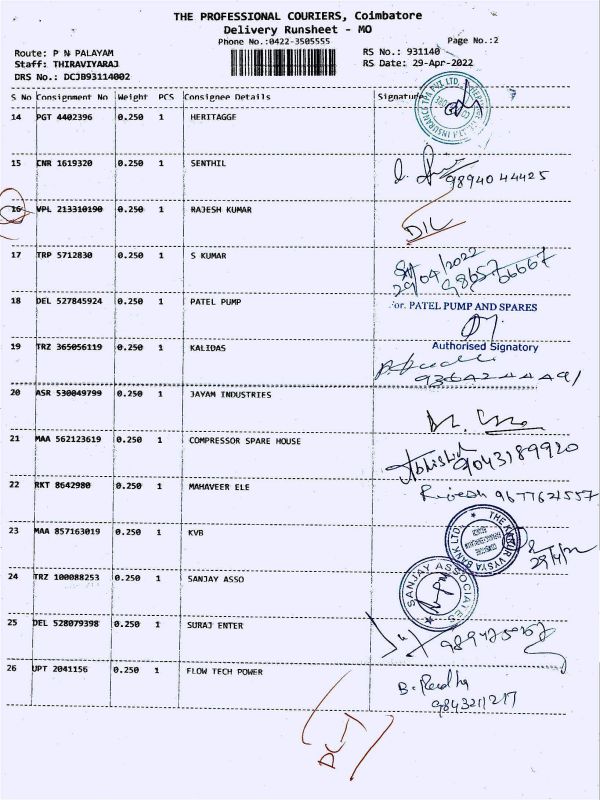 THE PROFESSIONAL COURIERS, Coimbatore
Delivery Runsheet - MO
Phone No.:0422-3505555
Page No.:2
Route: P N PALAYAM
RS No.: 931140
Staff: THIRAVIYARAJ
RS Date: 29-Apr-2022
DRS No.: DCJB93114002
S No Consignment No Weight PCS Consignee Details Signature
14 PGT 4402396 0.250 1 HERITAGGE
15 CNR 1619320 0.250 1 SENTHIL
9894044425
16 VPL 213310190 0.250 1 RAJESH KUMAR
D/L
17 TRP 5712830 0.250 1 S KUMAR
29/04/2022
98657 66667
18 DEL 527845924 0.250 1 PATEL PUMP
For. PATEL PUMP AND SPARES
Authorised Signatory
19 TRZ 365056119 0.250 1 KALIDAS
20 ASR 530049799 0.250 1 JAYAM INDUSTRIES
21 MAA 562123619 0.250 1 COMPRESSOR SPARE HOUSE
Abhishek
9043189920
22 RKT 8642980 0.250 1 MAHAVEER ELE
9677621557
23 MAA 857163019 0.250 1 KVB
THE KARUR VYSYA BANK LTD.
29/4/22
24 TRZ 100088253 0.250 1 SANJAY ASSO
SANJAY ASSOCIATES
25 DEL 528079398 0.250 1 SURAJ ENTER
26 UPT 2041156 0.250 1 FLOW TECH POWER
B. Radha
9843211217
DC-1